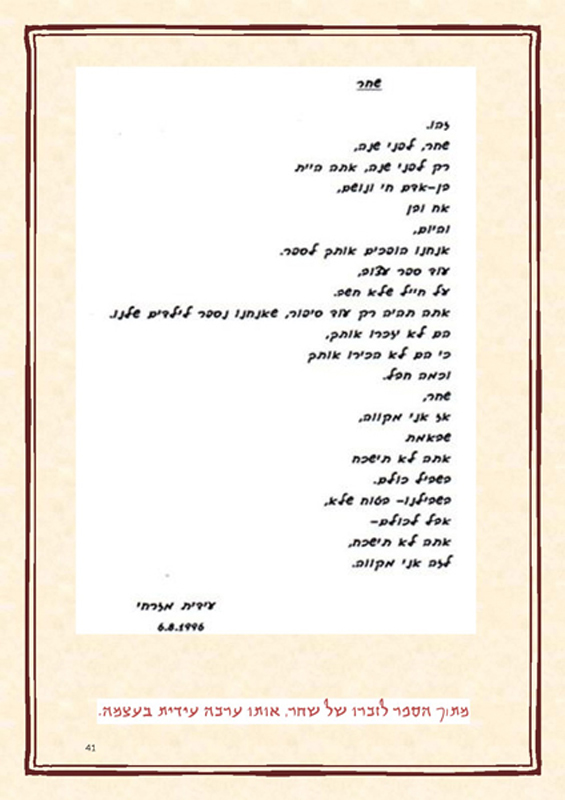 שחר
זהו.
שחר, לפני שנה,
רק לפני שנה, אתה היית
בן-אדם חי ונושם,
אח ובן
והיום,
אנחנו הופכים אותך לספר.
עוד ספר עצוב,
על חייל שלא חשב.
אתה תהיה רק עוד סיפור, שאנחנו נספר לילדים שלנו.
הם לא יזכרו אותך,
כי הם לא הכירו אותך
וכמה חבל.
שחר,
אז אני מקווה,
שבאמת
אתה לא תישכח
בשביל כולם.
בשבילנו- בטוח שלא,
אבל לכולם-
אתה לא תישכח,
לזה אני מקווה.
עידית מזרחי
6.8.1996
מתוך הספר לזכרו של שחר, אותו ערכה עידית בעצמה.
41